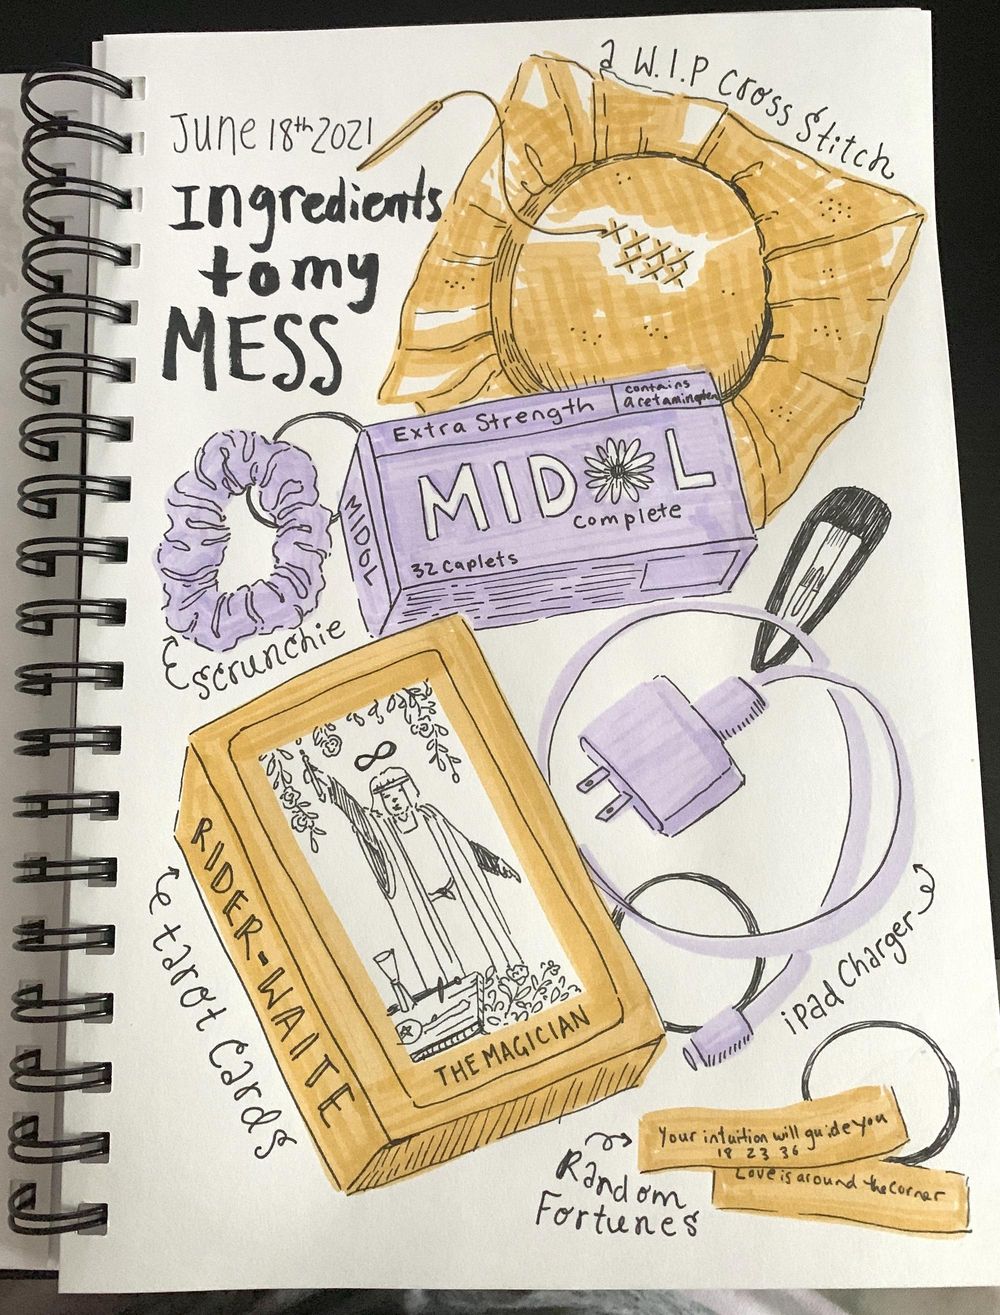 June 18th 2021
Ingredients
to my
MESS
a W.I.P Cross Stitch
Extra Strength
contains
acetaminophen
MIDOL
MIDOL
complete
32 Caplets
scrunchie
RIDER-WAITE
THE MAGICIAN
tarot Cards
iPad Charger
Your intuition will guide you
18 23 36
Love is around the corner
Random
Fortunes